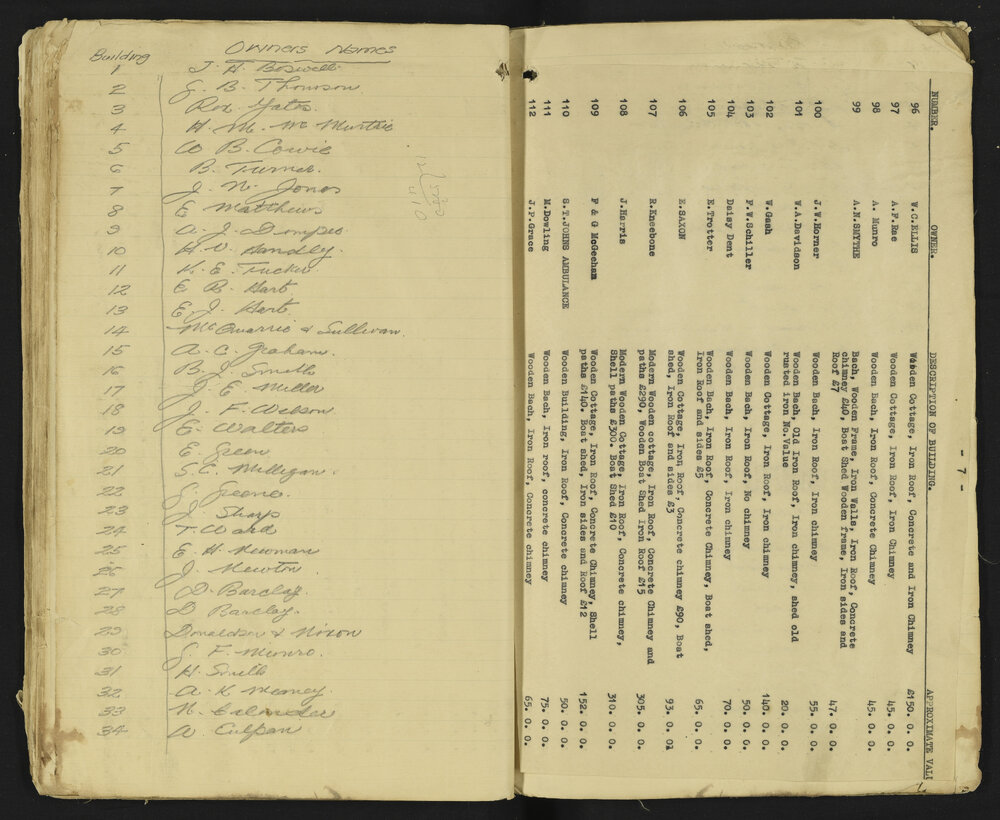 Building Owners Names
1 J. H. Boswell
2 G. B. Thomson
3 Rod. Yates.
4 H. M. Mc Murtrie
5 W B. Cowie
6 B. Turner.
7 J. N. Jones
8 E Matthews
9 A. J. Dompeo
10 H. V. Handly.
11 K. E. Tucker
12 E B. Hart
13 E. J. Hart.
14 McQuarrie & Sullivan.
15 A. C. Graham.
16 B. J. Smith
17 J. E. Miller
18 J. F. Watson
19 E. Walters
20 E. Green
21 S. C. Milligan.
22 Greene.
23 J. Sharp
24 T. Ward
25 E. H. Newman
26 J. Newton
27 D. Barclay.
28 D Barclay.
29 Donaldson & Nixon
30 F. Munro.
31 H. Smith
32 A. K Meaney.
33 N.
34 A. Culpan
- 7 -
NUMBER. OWNER. DESCRIPTION OF BUILDING. APPROXIMATE VALU
96 W.C.ELLIS Wooden Cottage, Iron Roof, Concrete and Iron Chimney £150. 0. 0.
97 A.F.Rae Wooden Cottage, Iron Roof, Iron Chimney 45. 0. 0.
98 A. Munro Wooden Bach, Iron Roof, Concrete Chimney 45. 0. 0.
99 A.N.SMYTHE Bach, Wooden Frame, Iron Walls, Iron Roof, Concrete
chimney £40, Boat Shed Wooden frame, Iron sides and
Roof £7 47. 0. 0.
100 J.W.Horner Wooden Bach, Iron Roof, Iron chimney 55. 0. 0.
101 W.A.Davidson Wooden Bach, Old Iron Roof, Iron chimney, shed old
rusted iron.No.Value 20. 0. 0.
102 W.Gash Wooden Cottage, Iron Roof, Iron chimney 140. 0. 0.
103 F.W.Schiller Wooden Bach, Iron Roof, No chimney 50. 0. 0.
104 Daisy Dent Wooden Bach, Iron Roof, Iron chimney 70. 0. 0.
105 E.Trotter Wooden Bach, Iron Roof, Concrete Chimney, Boat shed,
Iron Roof and sides £5 65. 0. 0.
106 E.SAXON Wooden Cottage, Iron Roof, Concrete chimney £90, Boat
shed, Iron Roof and sides £3 93. 0. 0
107 R.Kneebone Modern Wooden cottage, Iron Roof, Concrete Chimney and
paths £290, Wooden Boat Shed Iron Roof £15 305. 0. 0.
108 J.Harris Modern Wooden Cottage, Iron Roof, Concrete chimney,
Shell paths £300. Boat Shed £10 310. 0. 0.
109 F & G McGeehan Wooden Cottage, Iron Roof, Concrete Chimney, Shell
paths £140. Boat shed, Iron sides and Roof £12 152. 0. 0.
110 S.T.JOHNS AMBULANCE Wooden Building, Iron Roof, Concrete chimney 50. 0. 0.
111 M.Dowling Wooden Bach, Iron roof, concrete chimney 75. 0. 0.
112 J.P.Grace Wooden Bach, Iron Roof, Concrete chimney 65. 0. 0.